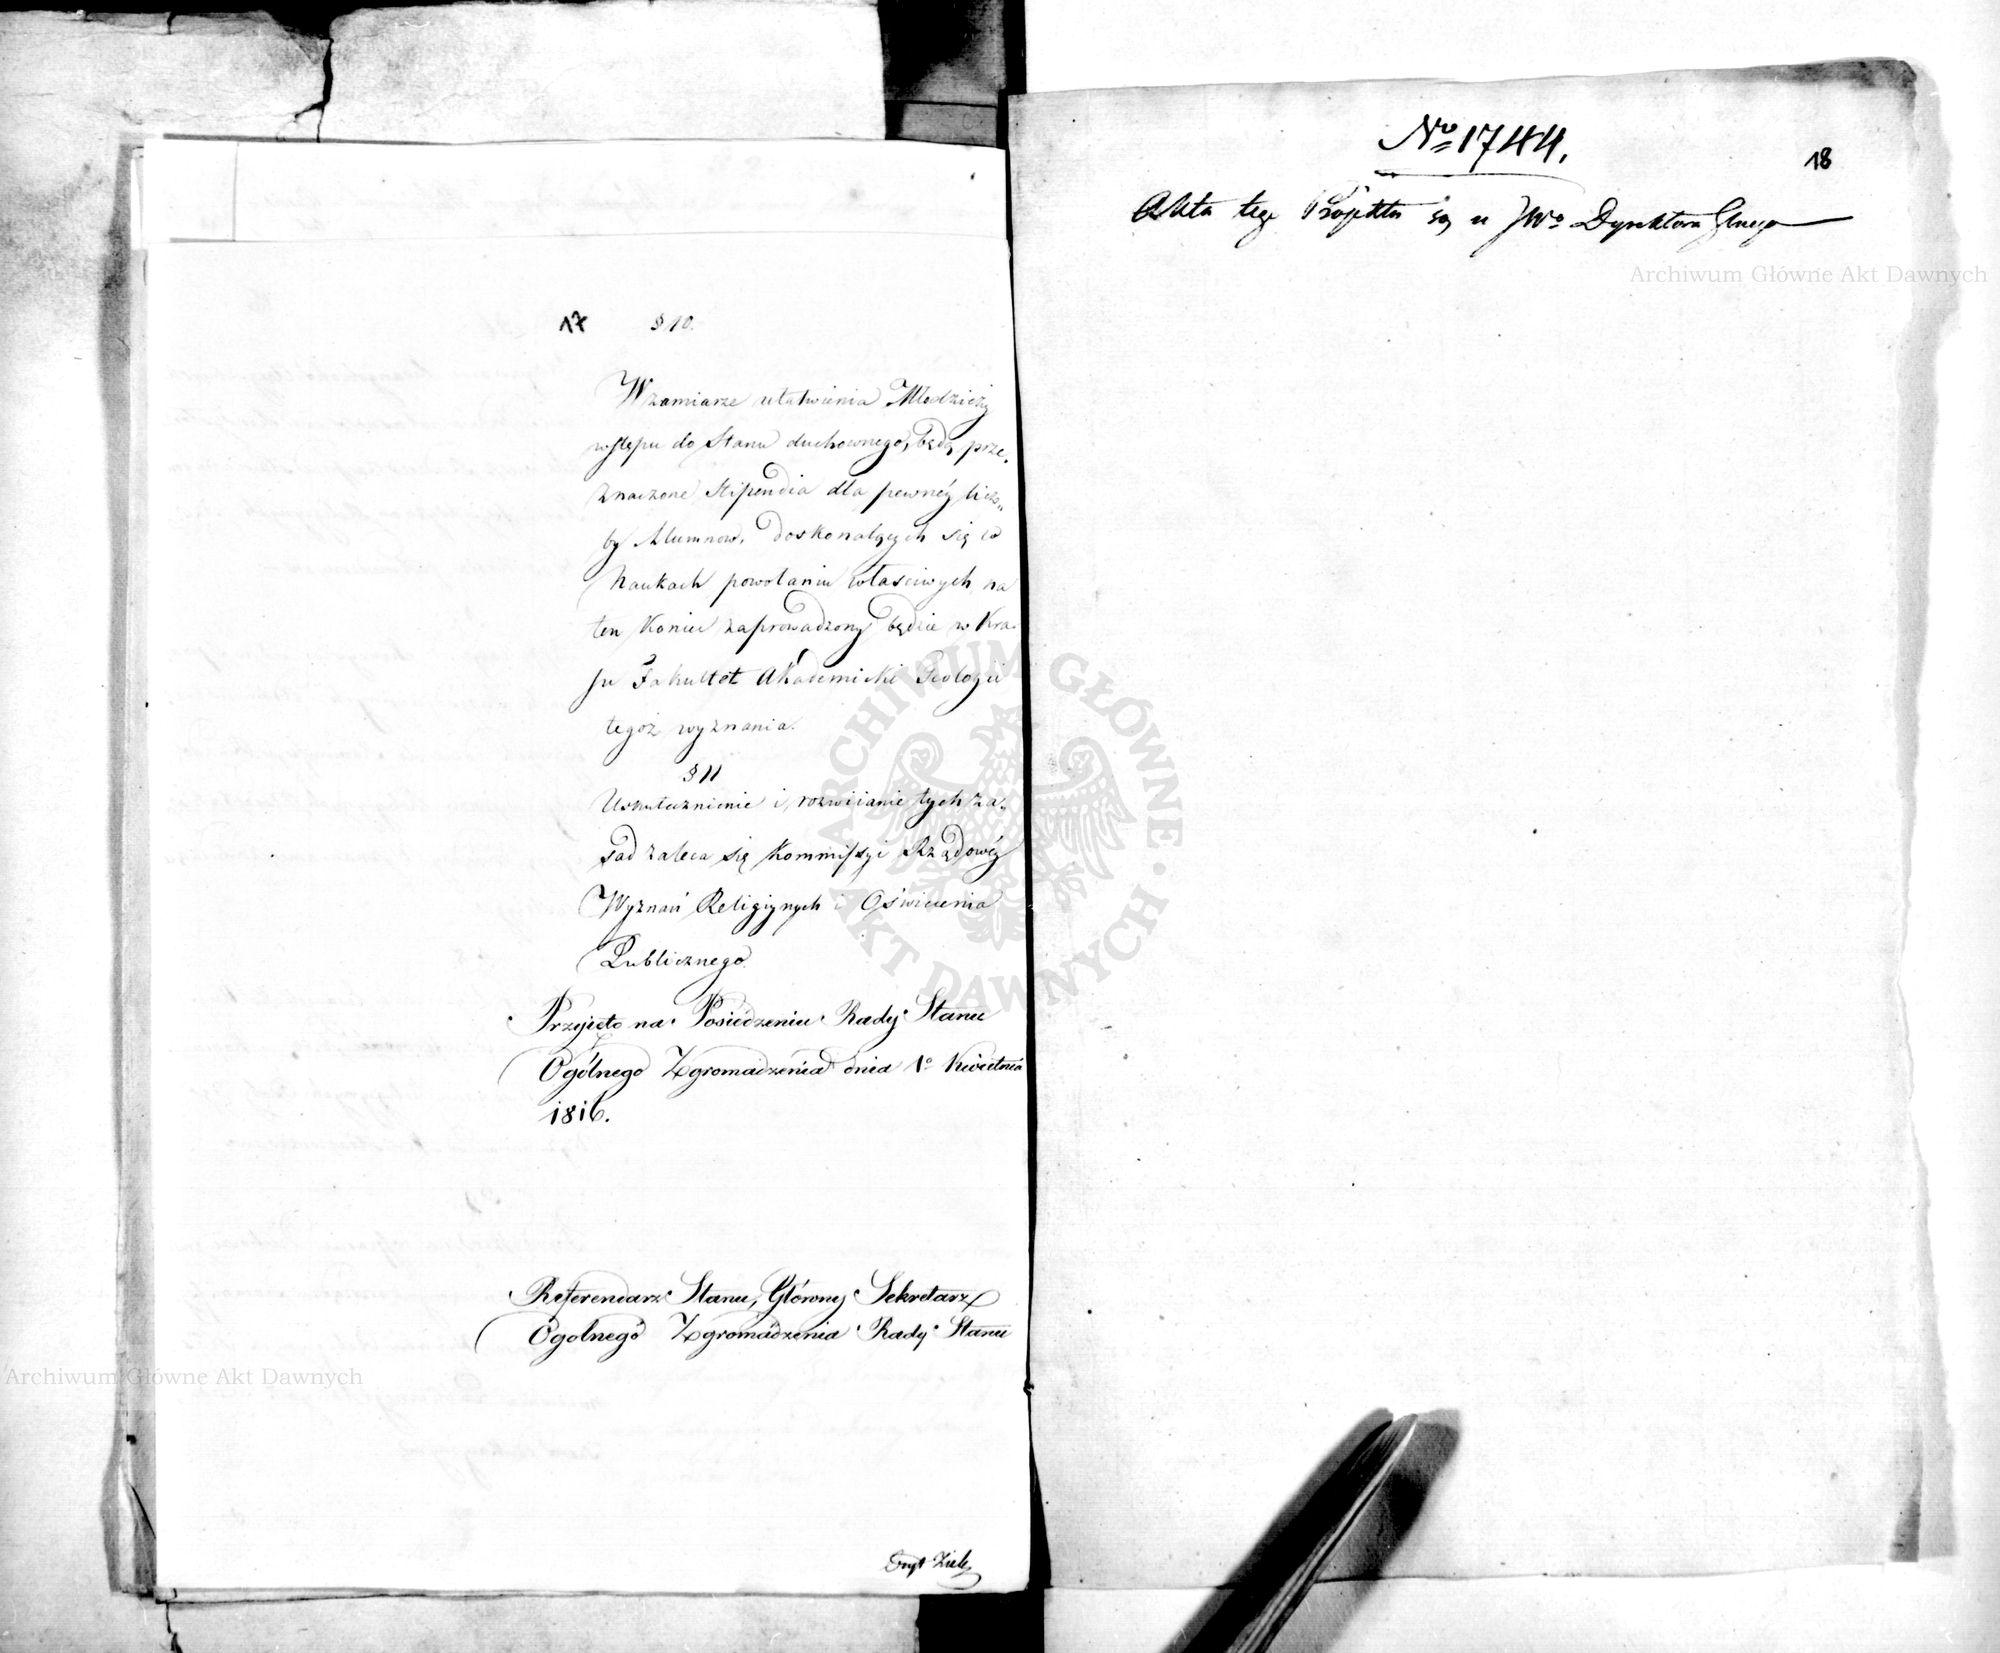 17 § 10.
W zamiarze ułatwienia Młodzieży
wstępu do Stanu duchownego, będą prze-
znaczone Stipendia dla pewnéy licz„
by Alumnow, doskonalących się w
Naukach powołaniu właściwych, na
ten Koniec zaprowadzony będzie w Kra-
ju Fakultet Akademicki Teologii
tegoż wyznania.
§ 11
Uskutecznienie i rozwiianie tych za„
sad zaleca się Kommissyi Rządowéy
Wyznań Religiynych i Oświecenia
Publicznego.
Przyięto na Posiedzeniu Rady Stanu
Ogólnego Zgromadzenia dnia 1o Kwietnia
1816.
Referendarz Stanu, Główny Sekretarz
Ogolnego Zgromadzenia Rady Stanu
No 1744.
18
Akta tego Projektu są u JWo Dyrektora Głnego
Archiwum Główne Akt Dawnych
Archiwum Główne Akt Dawnych
ARCHIWUM GŁÓWNE AKT DAWNYCH